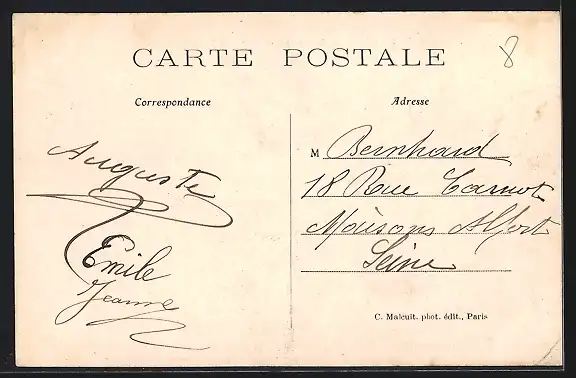 CARTE POSTALE
8
Correspondance
Adresse
Auguste
Emile
Jeanne
M Bernhard
18 Rue Carnot
Maisons Alfort
Seine
C. Malcuit. phot. édit., Paris